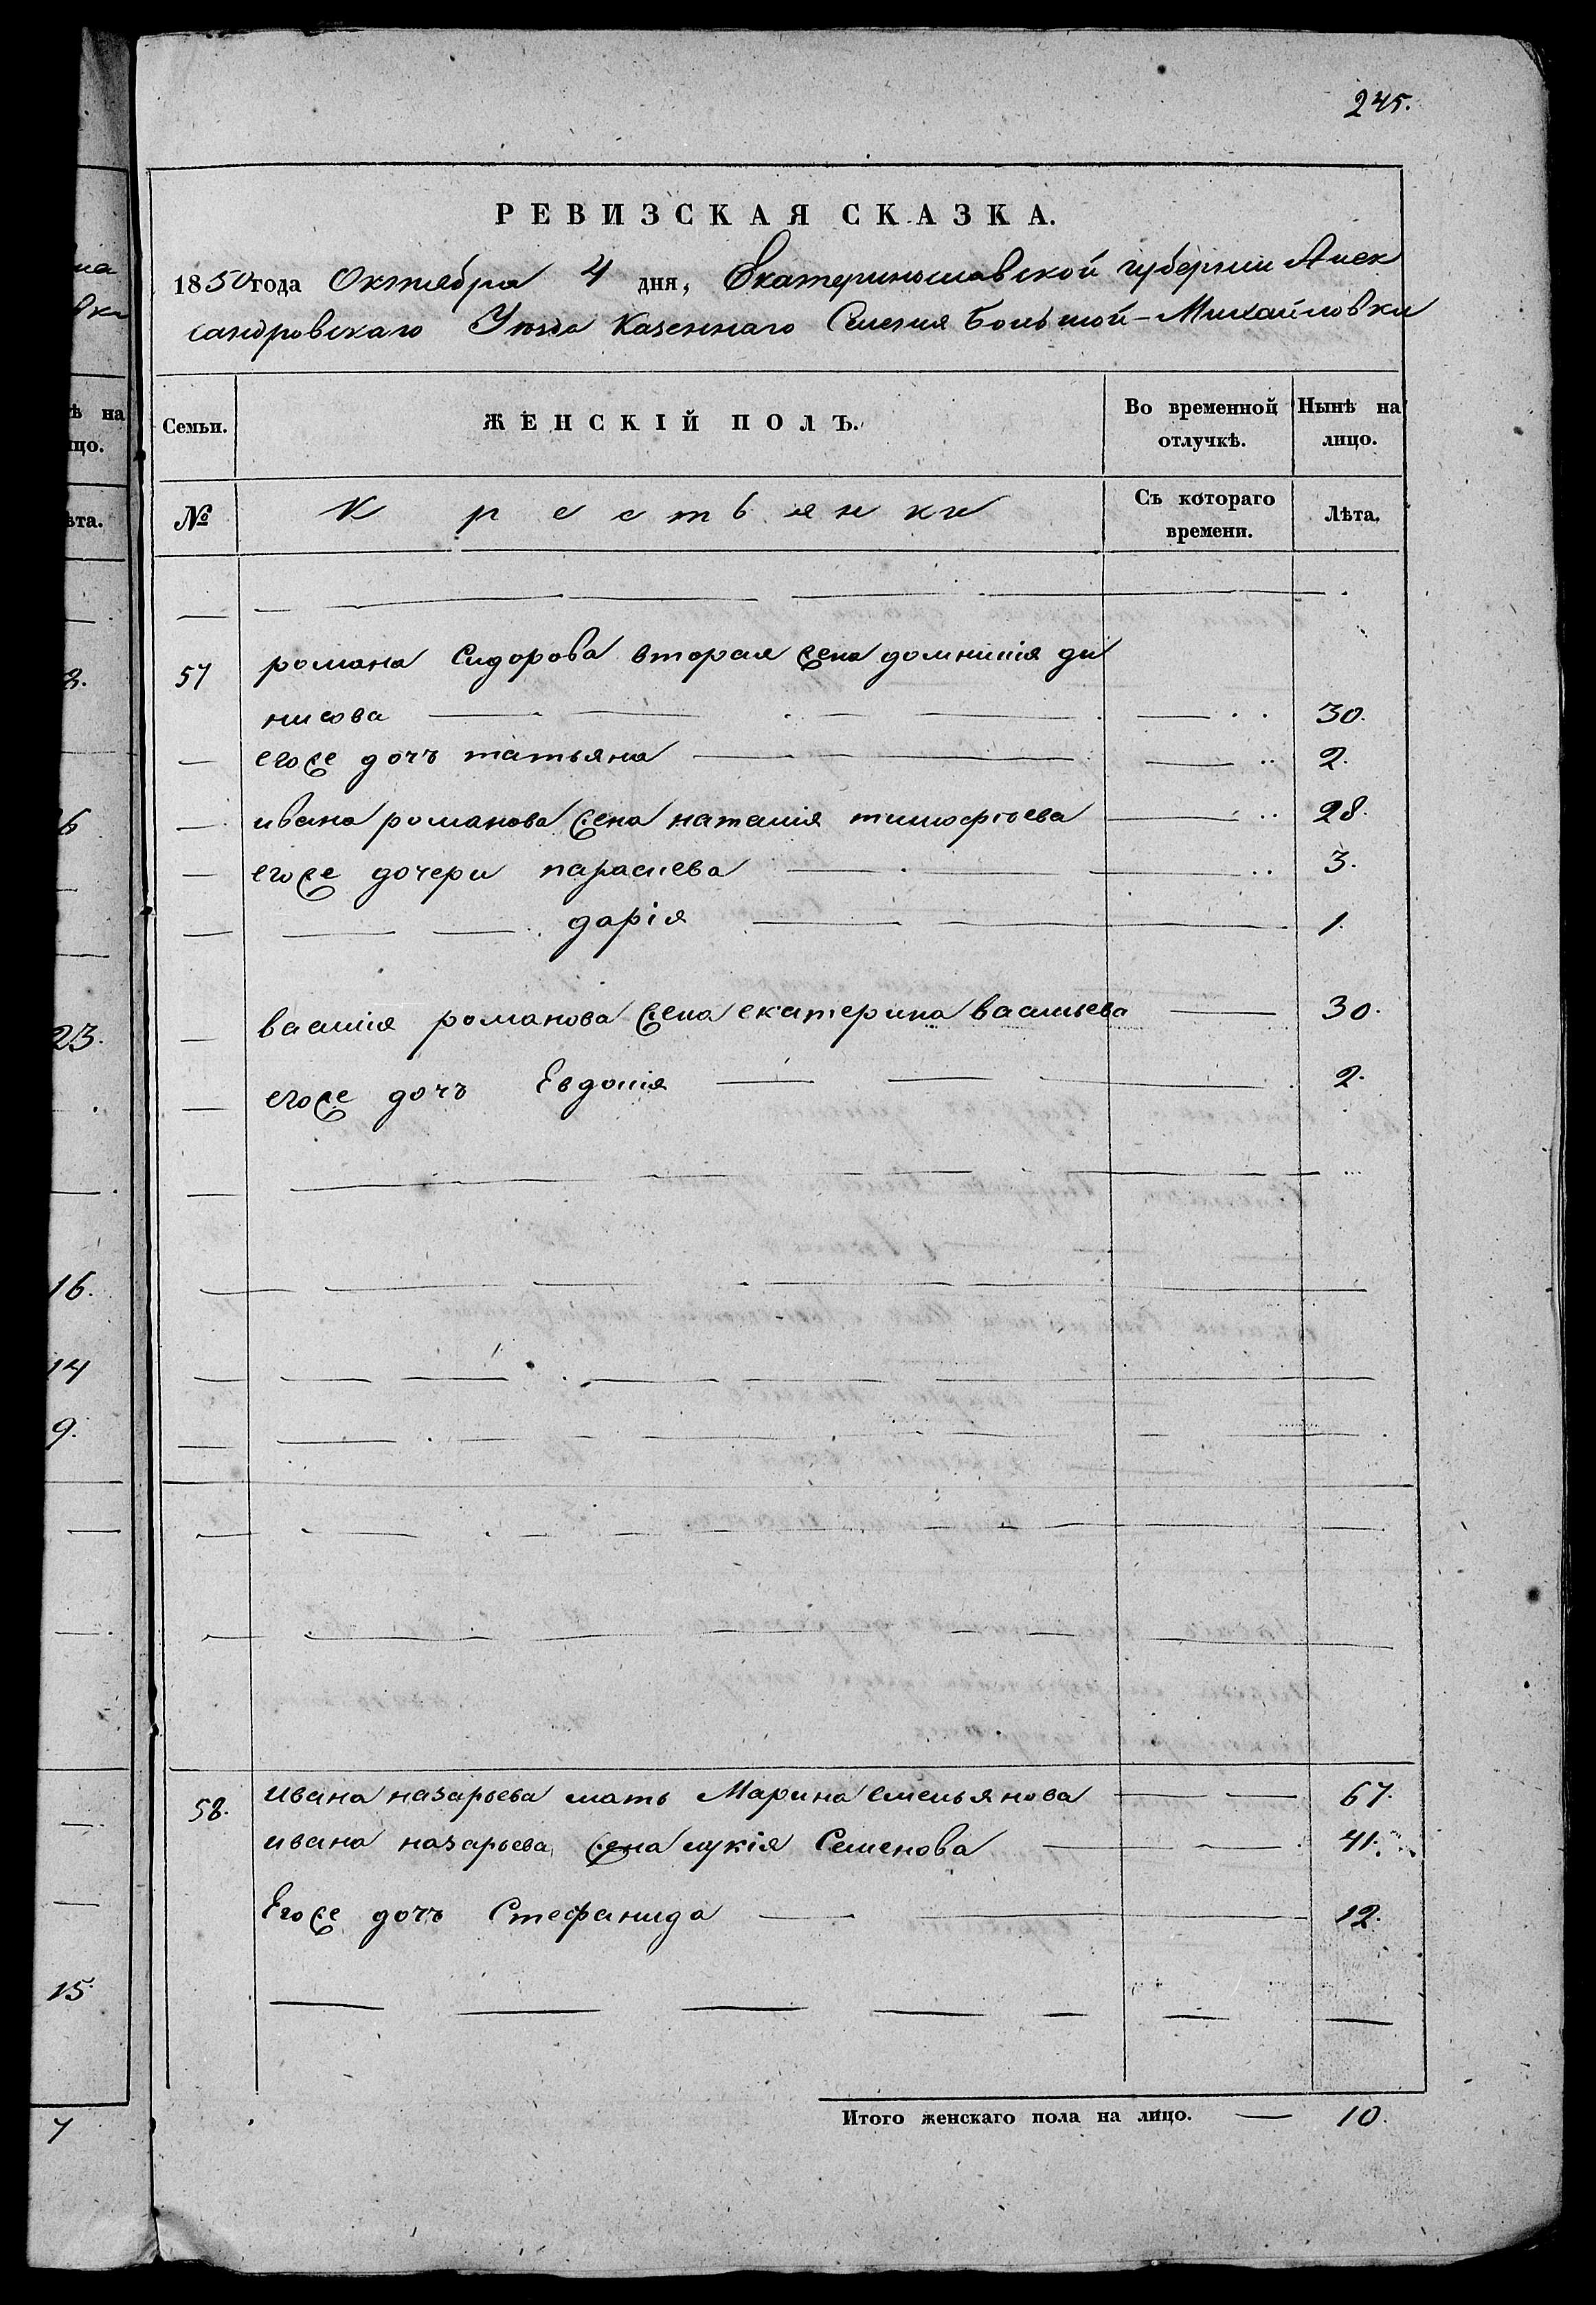 245.
РЕВИЗСКАЯ СКАЗКА.
1850 года Октября 4 дня, Екатеринославской губернии Алек
сандровскаго Уезда Казеннаго Селения Большой-Михайловки
Семьи.
ЖЕНСКІЙ ПОЛЪ.
Во временной отлучкѣ.
Нынѣ на лицо.
№
Крестьянки
Съ котораго времени.
Лѣта.
57 романа Сидорова вторая жена домникия ди
нисова 30.
егоже дочъ татьяна 2.
ивана романова жена наталия тимофѣева 28.
егоже дочери параскева 3.
дарія 1.
василия романова жена екатерина васильева 30.
егоже дочъ Евдокия 2.
58. ивана назарьева мать Марина емельянова 67.
ивана назарьева жена лукія Семенова 41.
Егоже дочъ Стефанида 12.
Итого женскаго пола на лицо. — 10.
ѣ на
цо.
ѣта.
23.
16.
14
9.
15
7